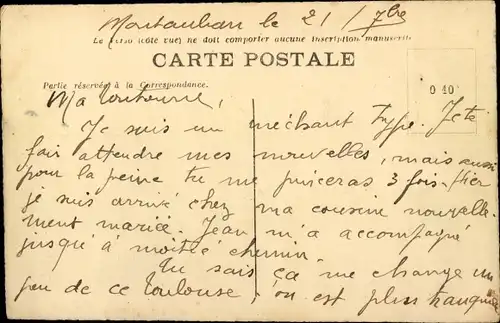 Montauban le 21/7bre
Le verso (côté vue) ne doit comporter aucune inscription manuscrite
CARTE POSTALE
Partie réservée à la Correspondance.
0 40
Ma
Je suis un méchant type. Je te
fais attendre mes nouvelles, mais aussi
pour la peine tu me puniras 3 fois. Hier
je suis arrivé chez ma cousine nouvelle-
ment mariée. Jean m'a accompagné
jusqu'à moitié chemin.
Tu sais ça me change un
peu de ce Toulouse, on est plus tranquille